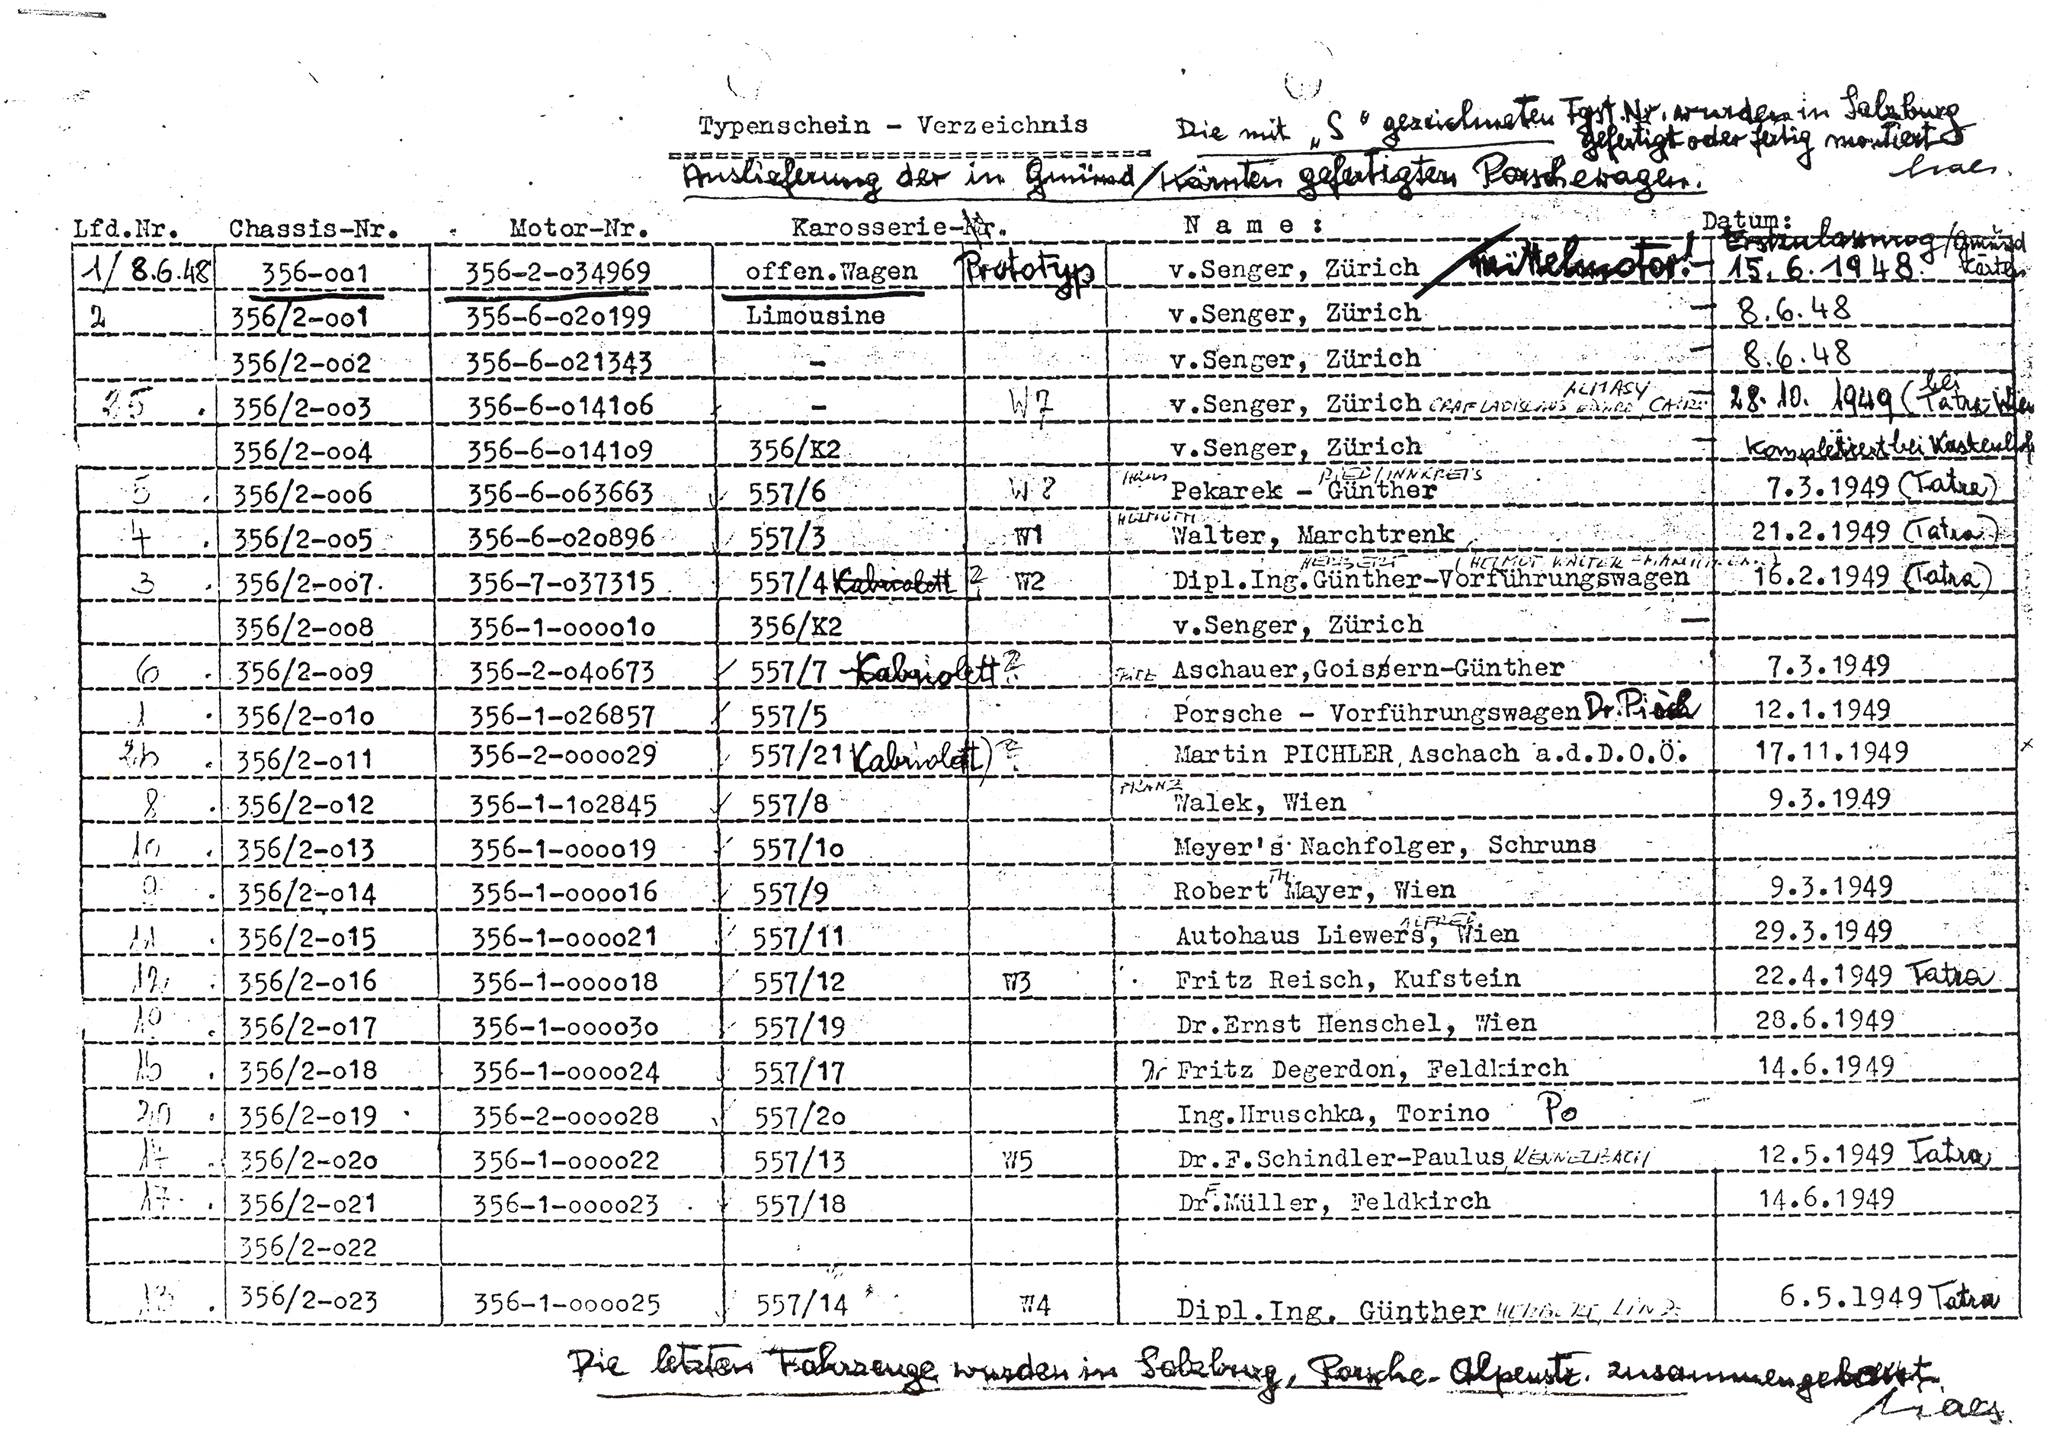 Typenschein - Verzeichnis
Die mit „S" gezeichneten Fgst.Nr. wurden in Salzburg
gefertigt oder fertig montiert
Auslieferung der in Gmünd/Kärnten gefertigten Porschewagen.
Lfd.Nr. Chassis-Nr. Motor-Nr. Karosserie-Nr. Name: Datum:
Erstzulassung/Gmünd
1/ 8.6.48 356-001 356-2-034969 offen.Wagen Prototyp v.Senger, Zürich Mittelmotor! - 15.6.1948 Kärten
2 356/2-001 356-6-020199 Limousine v.Senger, Zürich - 8.6.48
356/2-002 356-6-021343 - v.Senger, Zürich - 8.6.48
ALMASY bei
25 . 356/2-003 356-6-014106 - W7 v.Senger, Zürich GRAF LADISLAUS - 28.10. 1949 (Tatra Wien
356/2-004 356-6-014109 356/K2 v.Senger, Zürich - komplettiert bei Kastenhof
RIED/INNKREIS
5 . 356/2-006 356-6-063663 557/6 W8 Hans Pekarek - Günther 7.3.1949 (Tatra)
HELMUTH
4 . 356/2-005 356-6-020896 557/3 W1 Walter, Marchtrenk 21.2.1949 (Tatra)
HERBERT (HELMUT WALTER
3 . 356/2-007. 356-7-037315 557/4 Kabriolett ? W2 Dipl.Ing.Günther-Vorführungswagen 16.2.1949 (Tatra)
356/2-008 356-1-000010 356/K2 v.Senger, Zürich -
6 356/2-009 356-2-040673 557/7 Kabriolett ? Aschauer,Goisern-Günther 7.3.1949
1 . 356/2-010 356-1-026857 557/5 Porsche - Vorführungswagen Dr. Piëch 12.1.1949
356/2-011 356-2-000029 557/21 Kabriolett) ? Martin PICHLER, Aschach a.d.D.O.Ö. 17.11.1949 x
FRANZ
8 . 356/2-012 356-1-102845 557/8 Walek, Wien 9.3.1949
10 . 356/2-013 356-1-000019 557/10 Meyer's Nachfolger, Schruns
9 . 356/2-014 356-1-000016 557/9 Robert TH Mayer, Wien 9.3.1949
ALFRED
11 . 356/2-015 356-1-000021 557/11 Autohaus Liewers, Wien 29.3.1949
12 . 356/2-016 356-1-000018 557/12 W3 Fritz Reisch, Kufstein 22.4.1949 Tatra
19 . 356/2-017 356-1-000030 557/19 Dr.Ernst Henschel, Wien 28.6.1949
16 . 356/2-018 356-1-000024 557/17 Dr Fritz Degerdon, Feldkirch 14.6.1949
20 . 356/2-019 356-2-000028 557/20 Ing.Hruschka, Torino Po
14 . 356/2-020 356-1-000022 557/13 W5 Dr.F.Schindler-Paulus, KENNELBACH 12.5.1949 Tatra
17 . 356/2-021 356-1-000023 557/18 Dr.F.Müller, Feldkirch 14.6.1949
356/2-022
13 . 356/2-023 356-1-000025 557/14 W4 Dipl.Ing. Günther HERBERT, LINZ 6.5.1949 Tatra
Die letzten Fahrzeuge wurden in Salzburg, Porsche-Alpenstr. zusammengebaut.